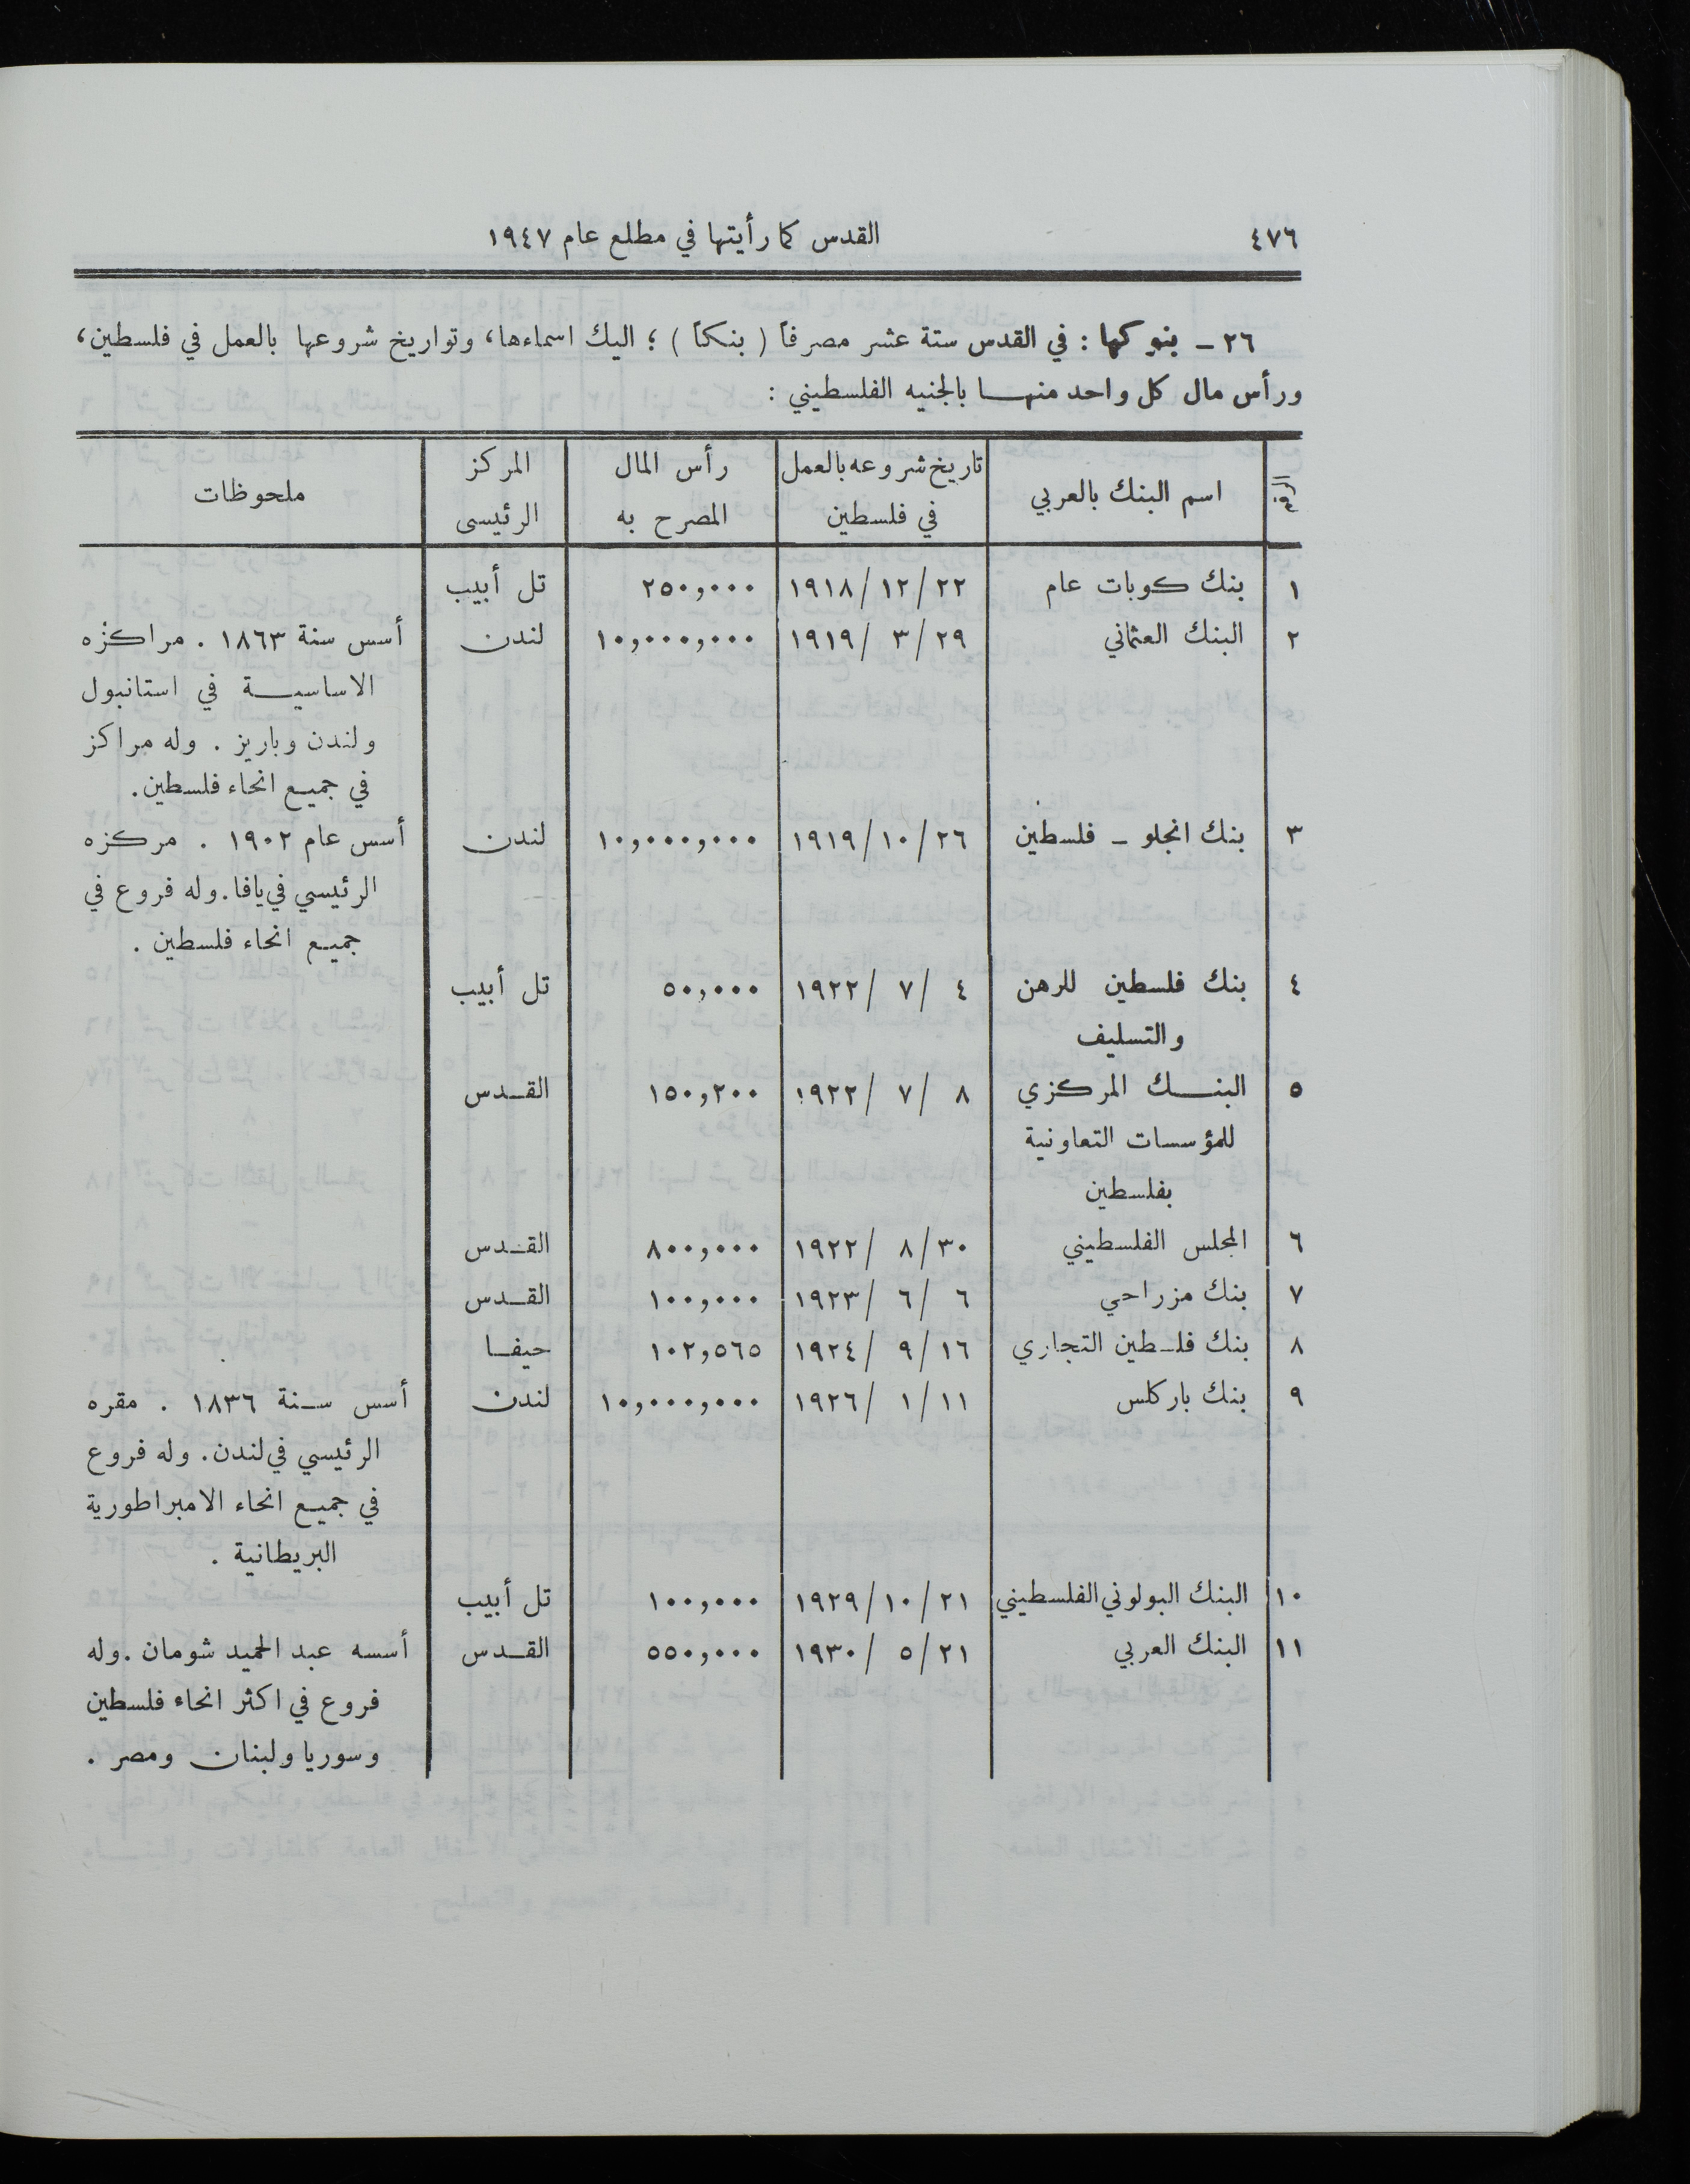 ٤٧٦
القدس كما رأيتها في مطلع عام ١٩٤٧
٢٦ ـ بنوكها : في القدس ستة عشر مصرفاً ( بنكاً ) ؛ اليك اسماءها، وتواريخ شروعها بالعمل في فلسطين،
ورأس مال كل واحد منهـــا بالجنيه الفلسطيني :
الرقم | اسم البنك بالعربي | تاريخ شروعه بالعمل | رأس المال | المركز | ملحوظات
في فلسطين | المصرح به | الرئيسى
١ | بنك كوبات عام | ٢٢/ ١٢/ ١٩١٨ | ٢٥٠,٠٠٠ | تل أبيب
٢ | البنك العثماني | ٢٩/ ٣ /١٩١٩ | ١٠,٠٠٠,٠٠٠ | لندن | أسس سنة ١٨٦٣ . مراكزه
الاساسيــة في استانبول
ولندن وباريز . وله مراكز
في جميع انحاء فلسطين.
٣ | بنك انجلو ـ فلسطين | ٢٦/ ١٠/ ١٩١٩ | ١٠,٠٠٠,٠٠٠ | لندن | أسس عام ١٩٠٢ . مركزه
الرئيسي في يافا. وله فروع في
جميع انحاء فلسطين .
٤ | بنك فلسطين للرهن | ٤ / ٧ /١٩٢٢ | ٥٠,٠٠٠ | تل أبيب
والتسليف
٥ | البنــك المركزي | ٨ / ٧ /١٩٢٢ | ١٥٠,٢٠٠ | القـدس
للمؤسسات التعاونية
بفلسطين
٦ | المجلس الفلسطيني | ٣٠/ ٨ /١٩٢٢ | ٨٠٠,٠٠٠ | القـدس
٧ | بنك مزراحي | ٦ / ٦ /١٩٢٣ | ١٠٠,٠٠٠ | القـدس
٨ | بنك فلسطين التجاري | ١٦/ ٩ /١٩٢٤ | ١٠٢,٥٦٥ | حيفـا
٩ | بنك باركلس | ١١/ ١ /١٩٢٦ | ١٠,٠٠٠,٠٠٠ | لندن | أسس سـنة ١٨٣٦ . مقره
الرئيسي في لندن. وله فروع
في جميع انحاء الامبراطورية
البريطانية .
١٠ | البنك البولوني الفلسطيني | ٢١/ ١٠/ ١٩٢٩ | ١٠٠,٠٠٠ | تل أبيب
١١ | البنك العربي | ٢١/ ٥ /١٩٣٠ | ٥٥٠,٠٠٠ | القـدس | أسسه عبد الحميد شومان .وله
فروع في اكثر انحاء فلسطين
وسوريا ولبنان ومصر .